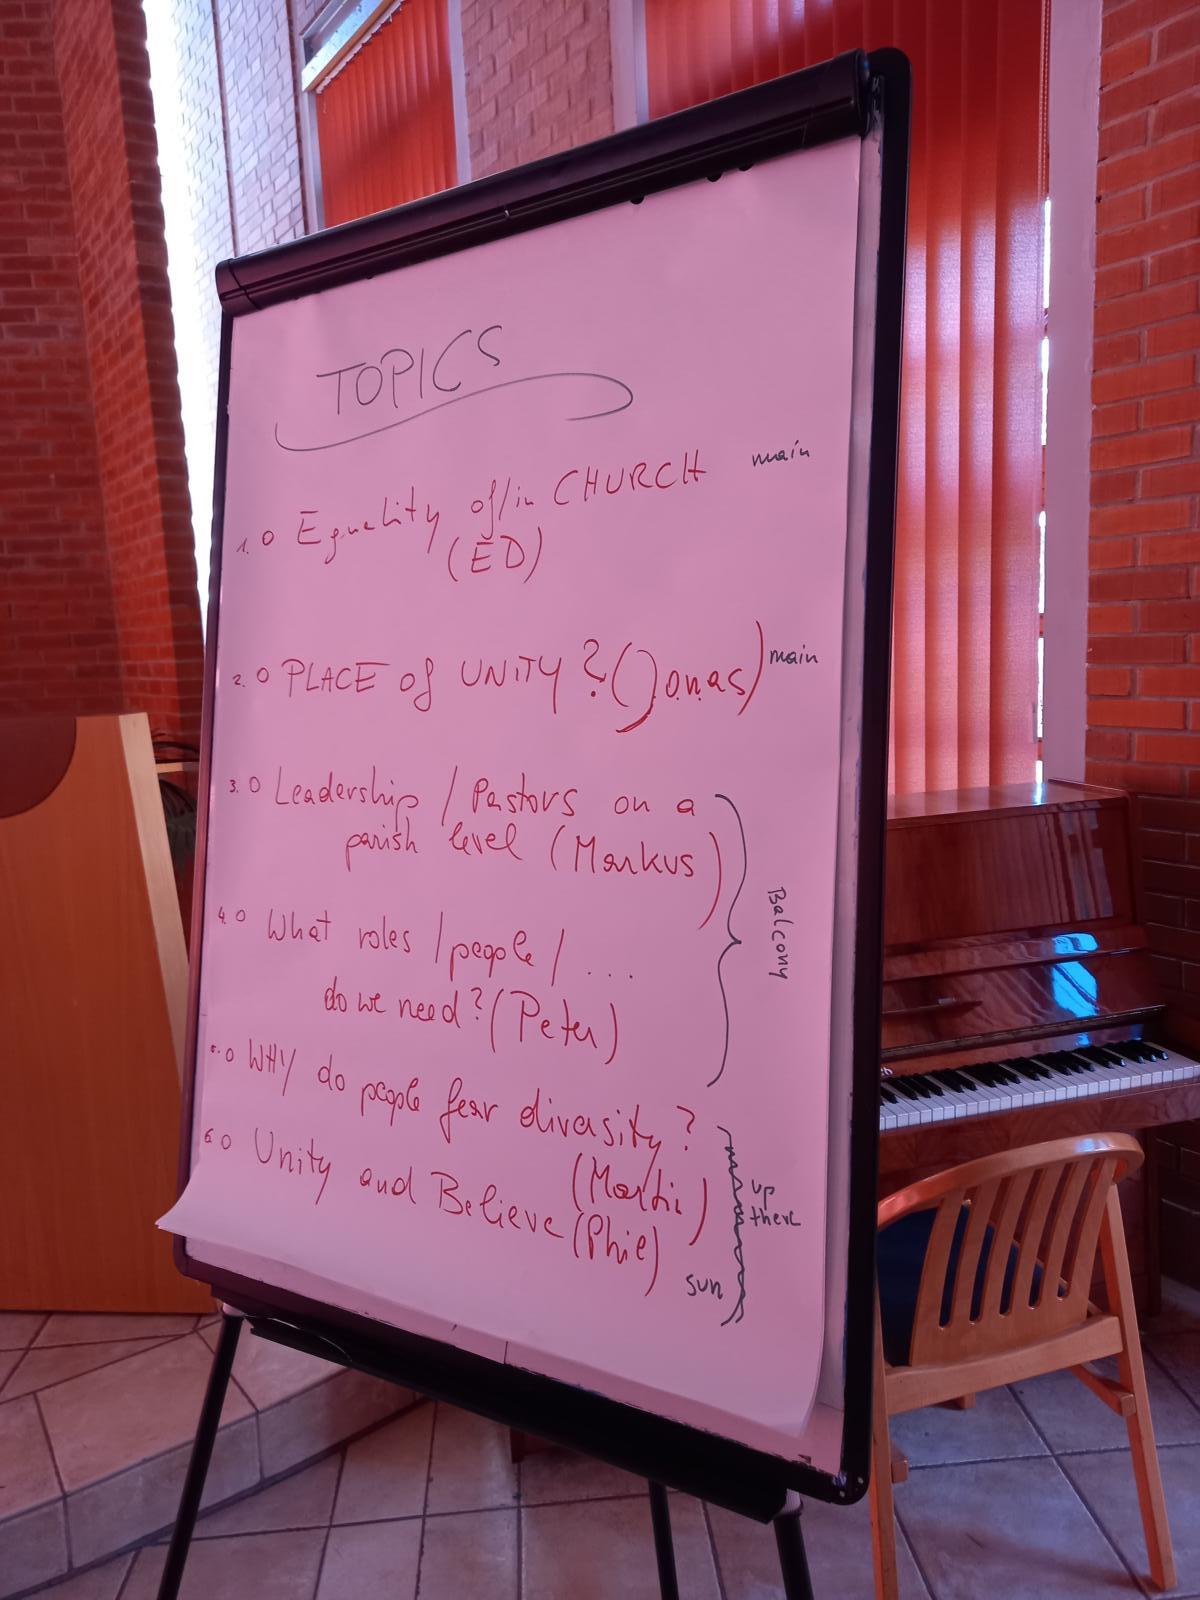 TOPICS
1. o Equality of/in CHURCH main
(ED)
2. o PLACE of UNITY? (Jonas) main
3. o Leadership / Pastors on a
parish level (Markus)
4. o What roles / people / ...
do we need? (Peter)
Balcony
5. o WHY do people fear diversity?
(Martii)
6. o Unity and Believe (Phil)
up
there
sun